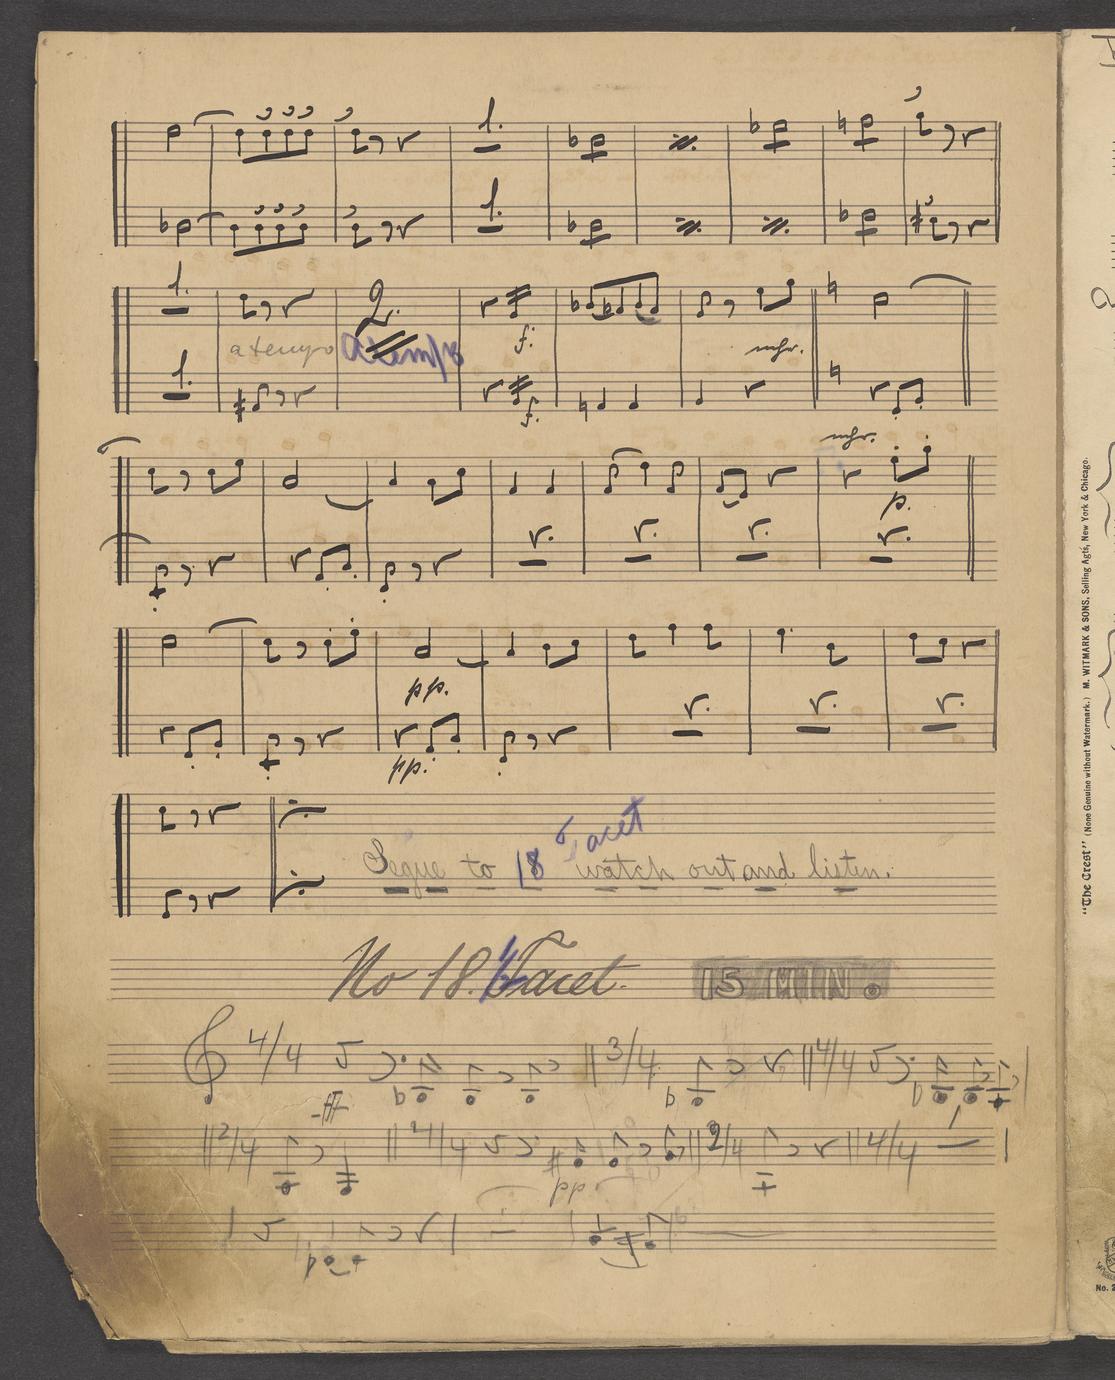 1.
1.
1.
a tempo a tempo
2.
f.
mhr.
1.
f.
mhr.
p.
pp.
pp.
Segue to 18 Tacet watch out and listen.
No 18. Tacet. 15 MIN.
4/4 3/4 4/4
ff
2/4 4/4 2/4 4/4
pp
"The Crest" (None Genuine without Watermark.) M. WITMARK & SONS, Selling Agts, New York & Chicago.
No. 2